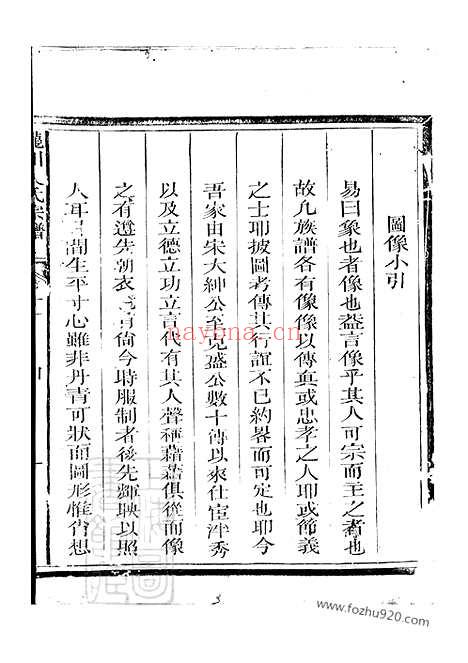 圖像小引
易曰象也者像也益言像乎其人可宗而主之者也
故凡族譜各有像像以傳真或忠孝之人耶或節義
之士耶披圖考傳其行誼不已約畧而可定也耶今
吾家由宋大紳公至克盛公數十傳以來仕宦泮秀
以及立德立功立言代有其人聲稱藉藉俱從而像
之有遵先朝衣冠有尙今時服制者後先輝映以照
人耳目間生平寸心雖非丹青可狀而圖形惟肖想
氏宗譜
nayona.cn
www.fozhu920.com